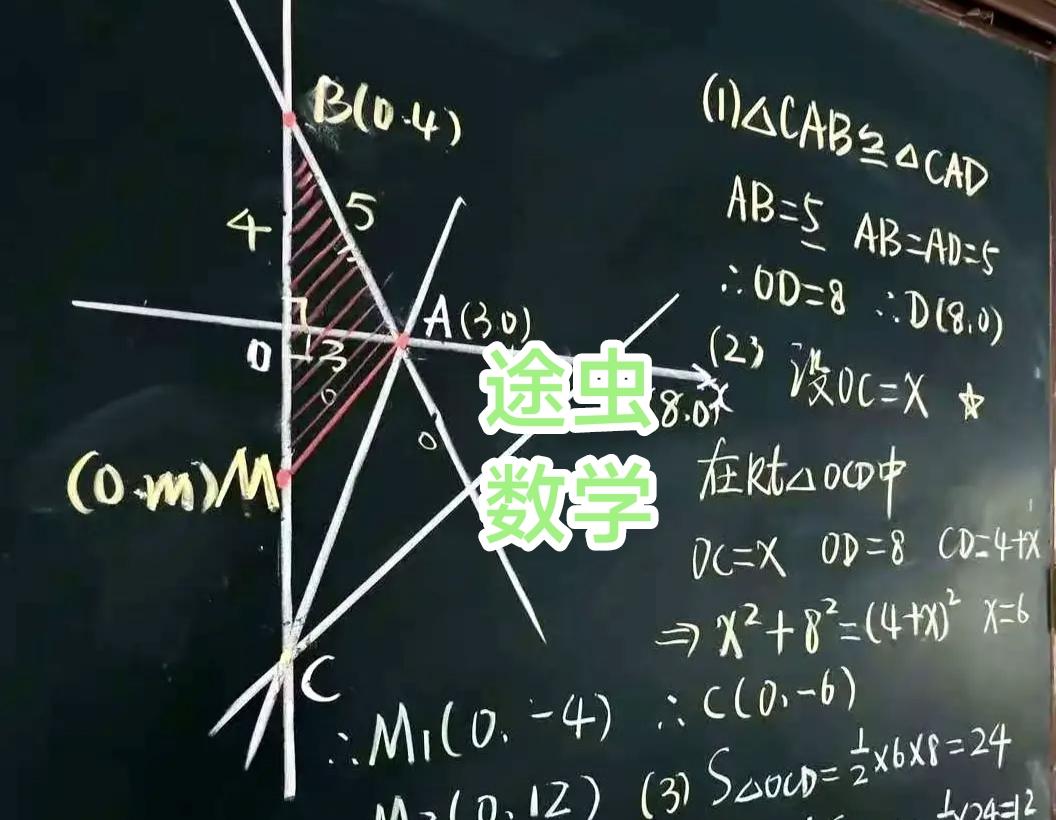 B(0.4)
4
5
A(3.0)
0
3
(0.m)M
C
8.0
x
途虫
数学
(1)△CAB≌△CAD
AB=5 AB=AD=5
∴OD=8 ∴D(8.0)
(2) 设OC=X ☆
在Rt△OCD中
OC=X OD=8 CD=4+x
⇒X²+8²=(4+X)² X=6
∴M1(0,-4) ∴C(0,-6)
M2(0,12) (3) S△OCD=½×6×8=24
½×24=12